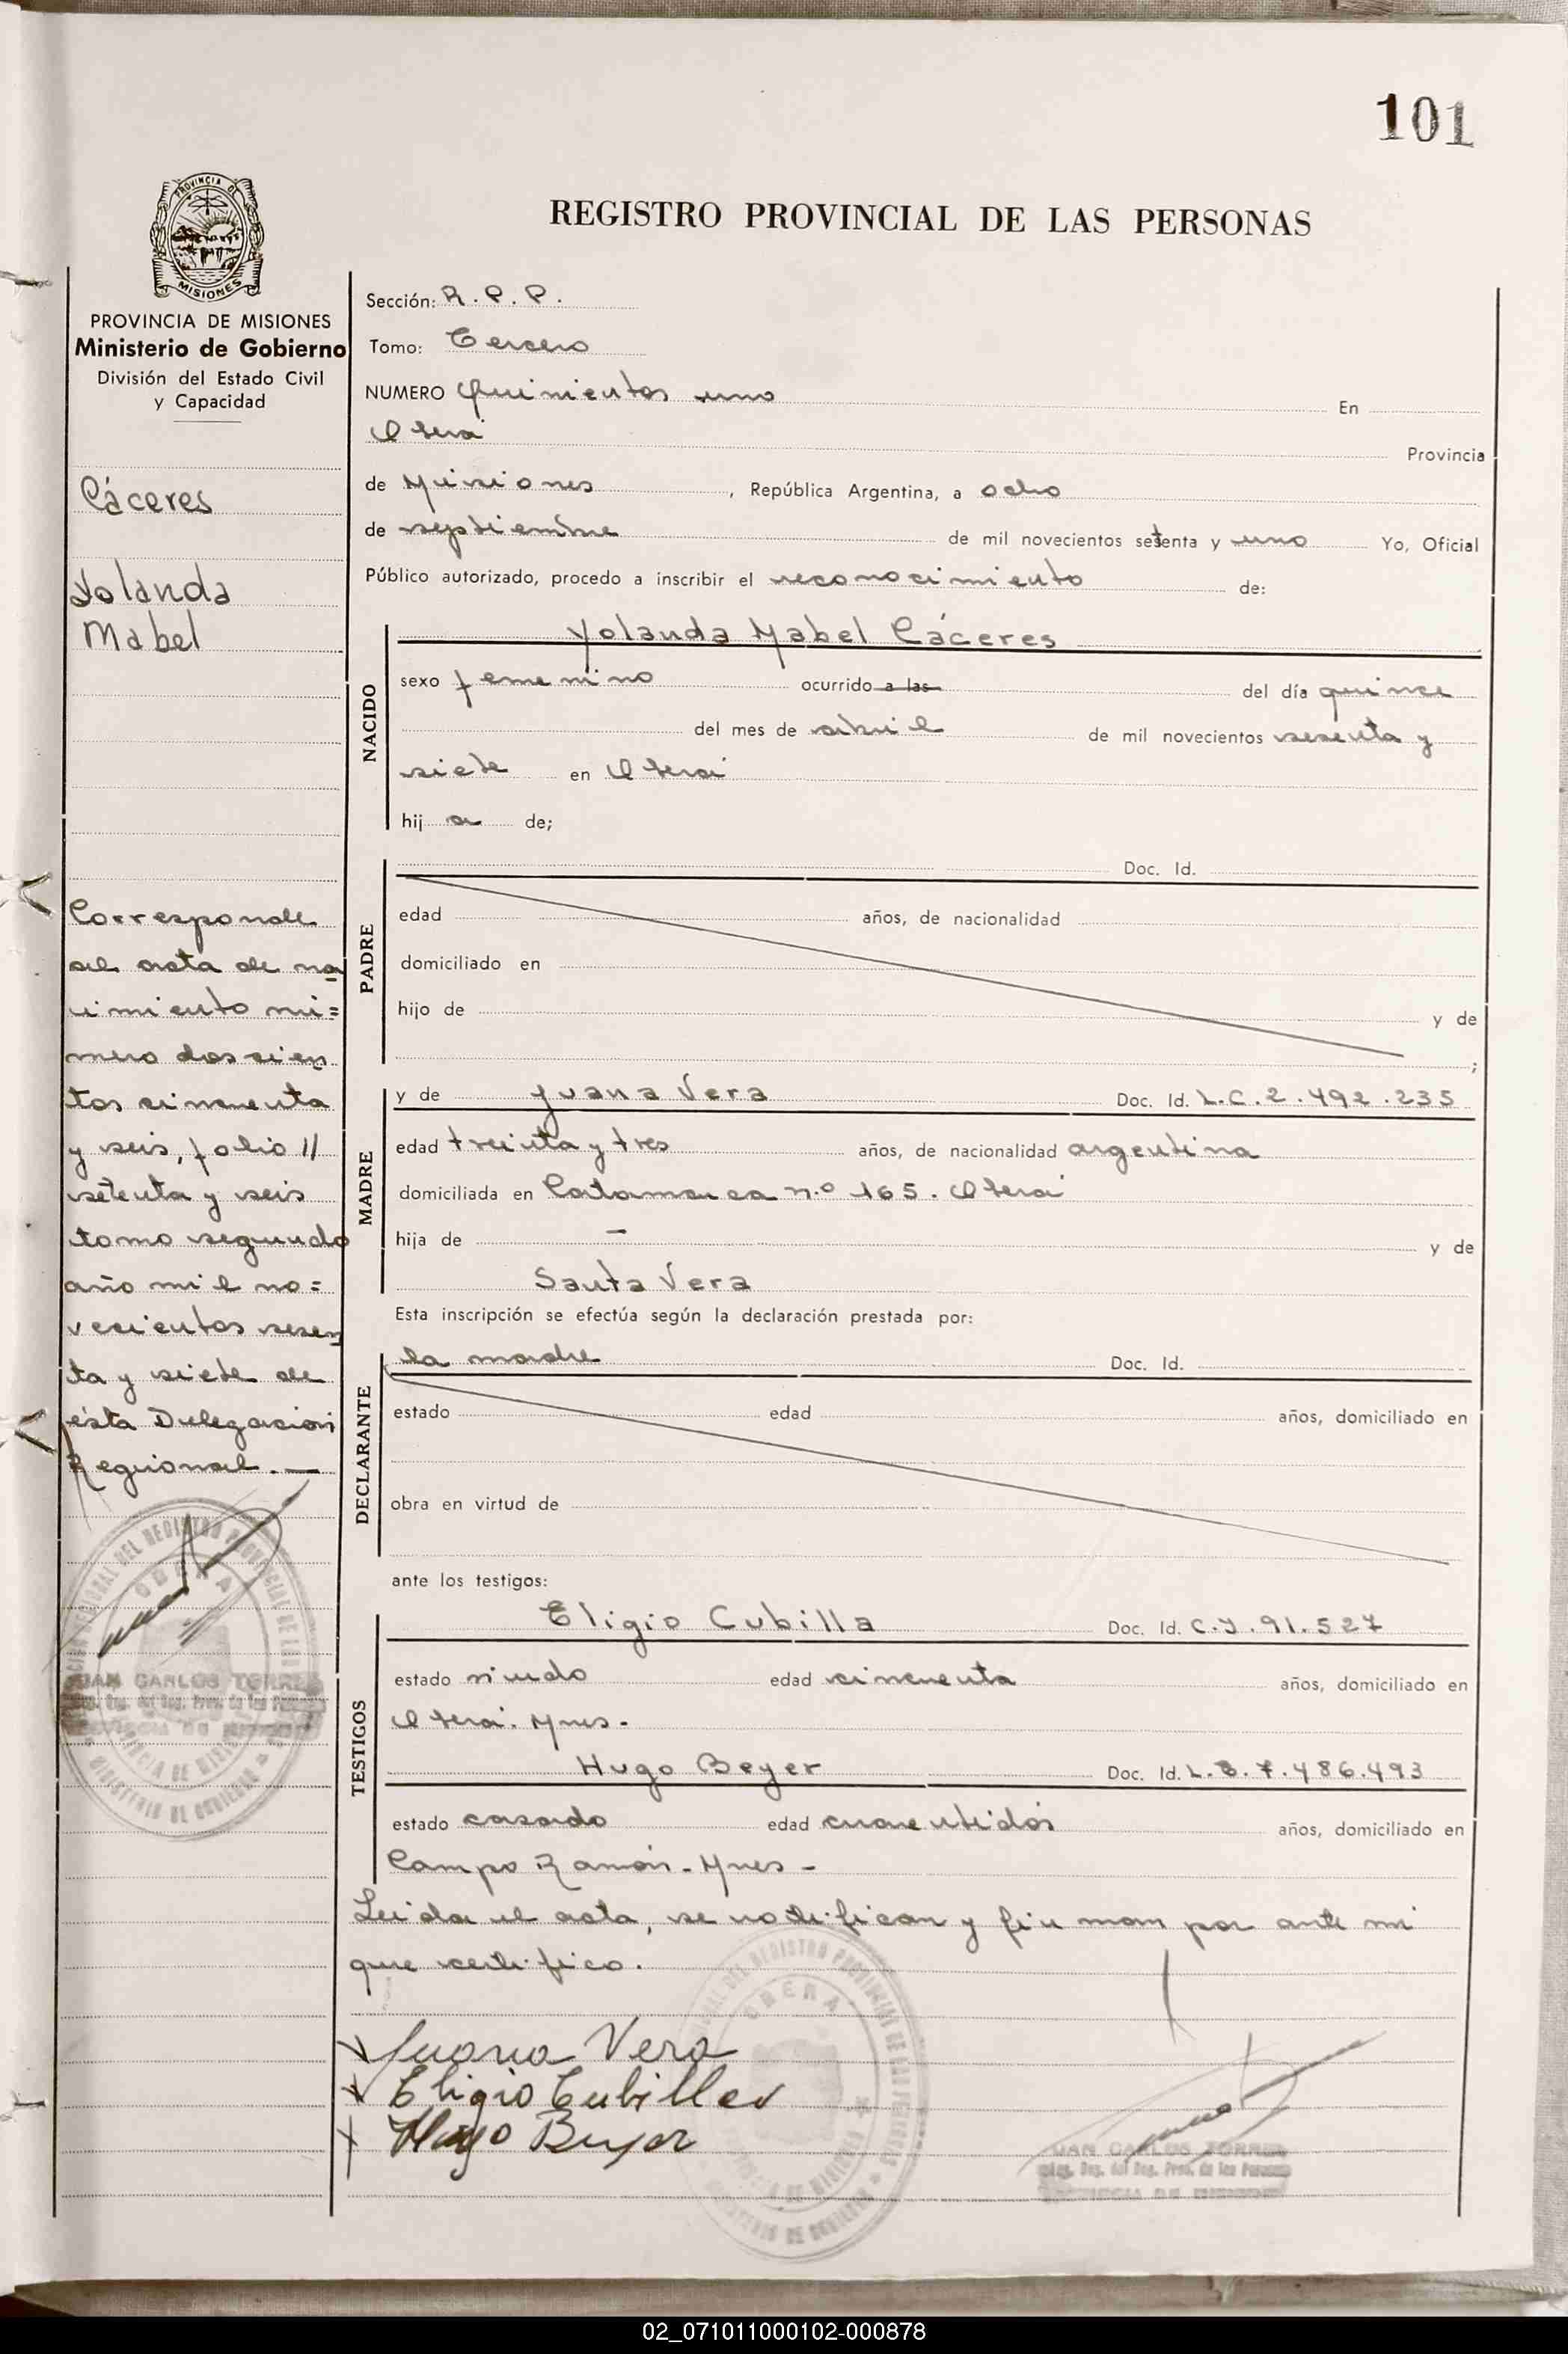 101
REGISTRO PROVINCIAL DE LAS PERSONAS
PROVINCIA DE
MISIONES
PROVINCIA DE MISIONES
Ministerio de Gobierno
División del Estado Civil
y Capacidad
Cáceres
Yolanda
Mabel
Corresponde
al acta de na
cimiento nú=
mero doscien
tos cincuenta
y seis, folio //
setenta y seis
tomo segundo
año mil no=
vecientos sesen
ta y siete de
ésta Delegación
Regional.—
JUAN CARLOS TORRES
Sección: R.P.P.
Tomo: Tercero
NUMERO Quinientos uno En
Oberá
Provincia
de Misiones, República Argentina, a ocho
de septiembre de mil novecientos setenta y uno Yo, Oficial
Público autorizado, procedo a inscribir el reconocimiento de:
NACIDO
Yolanda Mabel Cáceres
sexo femenino ocurrido a las del día quince
del mes de abril de mil novecientos sesenta y
siete en Oberá
hij a de;
PADRE
Doc. Id.
edad años, de nacionalidad
domiciliado en
hijo de y de
;
MADRE
y de Juana Vera Doc. Id. L.C.2.492.235
edad treinta y tres años, de nacionalidad argentina
domiciliada en Catamarca n.º 165. Oberá
hija de — y de
Santa Vera
Esta inscripción se efectúa según la declaración prestada por:
DECLARANTE
la madre Doc. Id.
estado edad años, domiciliado en
obra en virtud de
ante los testigos:
TESTIGOS
Eligio Cubilla Doc. Id. C.I.91.527
estado viudo edad cincuenta años, domiciliado en
Oberá. Mnes.
Hugo Beyer Doc. Id. L.E.7.486.493
estado casado edad cuarentidós años, domiciliado en
Campo Ramón-Mnes-
Leida el acta, se notifican y firman por ante mí
que certifico.
Juana Vera
Eligio Cubilla
Hugo Beyer
OBERA
JUAN CARLOS TORRES
02_071011000102-000878